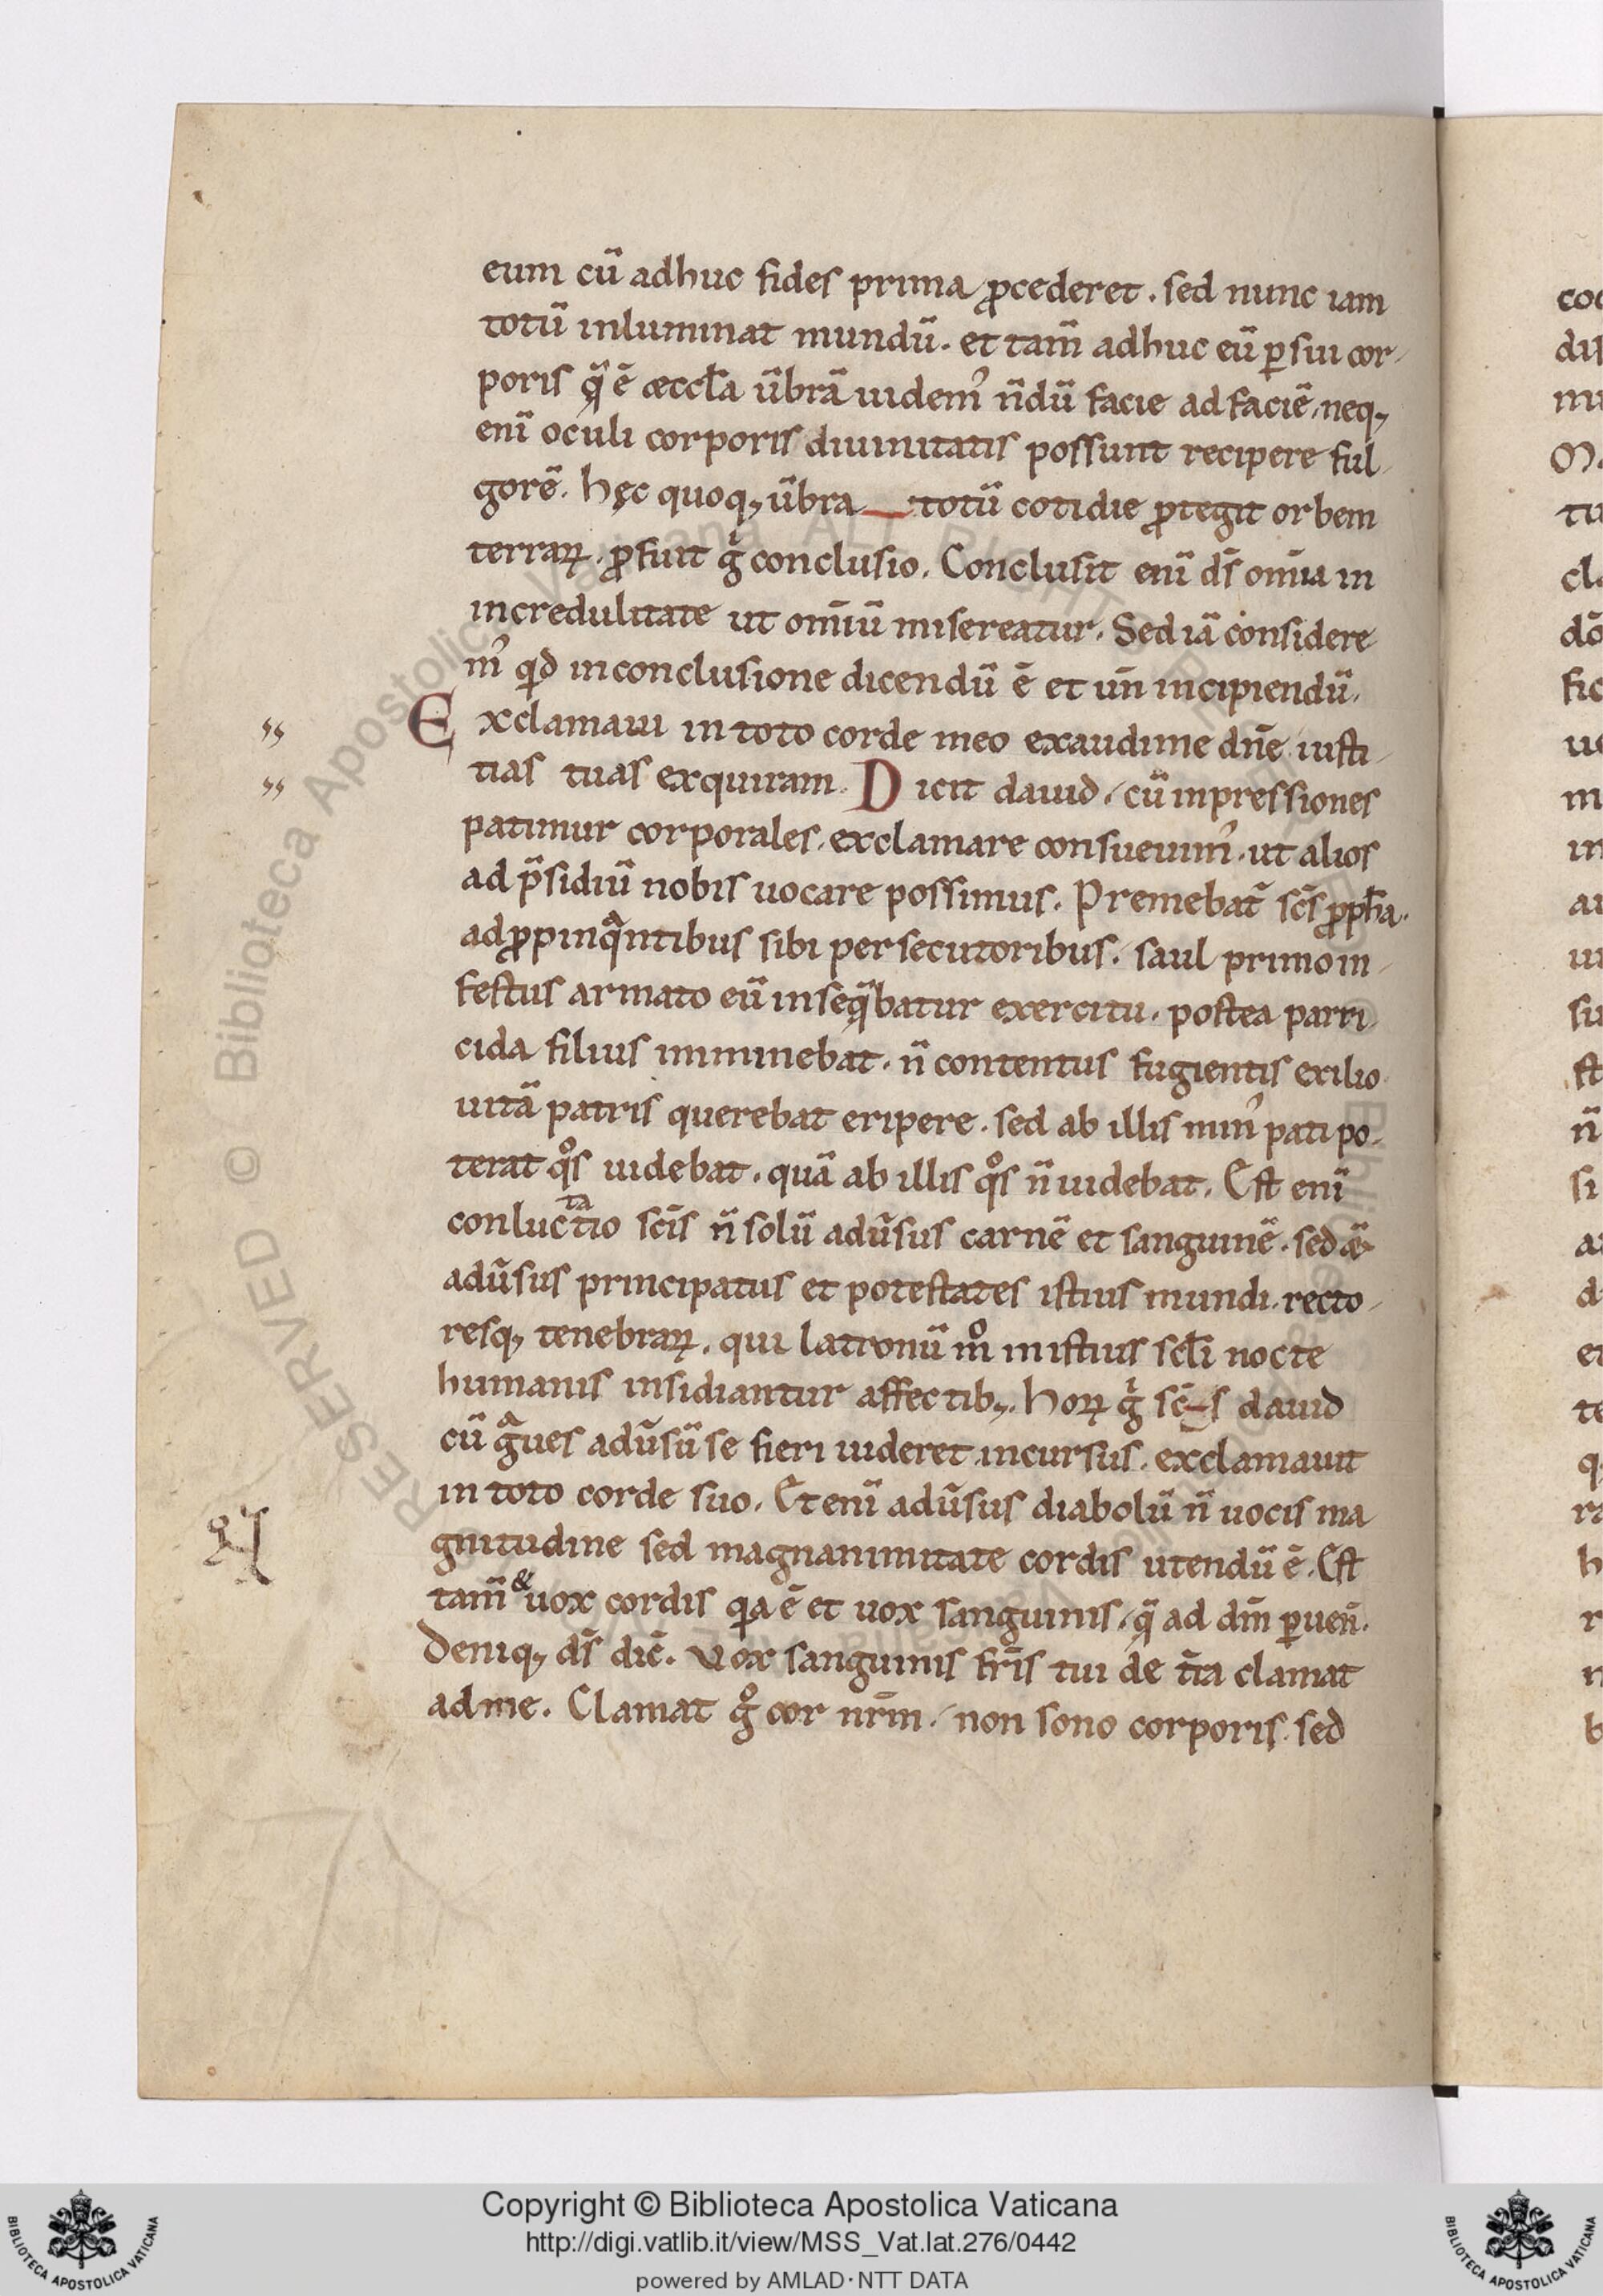 eum cū adhuc fides prima ꝓcederet. sed nunc iam
totū inluminat mundū. et tam̄ adhuc eū ꝑ sui cor-
poris q̄ ē æccl̄a ūbrā uidem᾽ n̄dū facie ad faciē, neq;
eni̅ oculi corporis diuinitatis possunt recipere ful-
gorē. hęc quoq; ūbra totū cotidie ꝓtegit orbem
terraꝝ. ꝓfuit gͥ conclusio. Conclusit eni̅ ds̄ om̄ia in
incredulitate ut om̄iū misereatur. Sed iā considere
m᾽ qd in conclusione dicendū ē et un̄ incipiendū.
" Exclamaui in toto corde meo exaudi me dn̄e iusti-
" tias tuas exquiram. Dicit dauid. cū inpressiones
patimur corporales. exclamare consueuim᾽. ut alios
ad p̄sidiū nobis uocare possimus. Premebat̄ sc̄s ꝓph̄a.
ad ꝓpinqͣntibus sibi persecutoribus. saul primo in-
festus armato eū inseq̄batur exercitu. postea parri-
cida filius imminebat. n̄ contentus fugientis exilio
uitā patris querebat eripere. sed ab illis min᾽ pati po-
terat qͦs uidebat. quā ab illis qͦs n̄ uidebat. Est eni̅
conluctatio sc̄is n̄ solū adūsus carnē et sanguinē. sed &
adūsus principatus et potestates istius mundi. recto-
resq; tenebraꝝ. qui latronū mͦ in istius scl̄i nocte
humanis insidiantur affectib;. hoꝝ gͥ sc̄s dauid
cū gͣues adūsū se fieri uideret incursus. exclamauit
in toto corde suo. Eteni̅ adūsus diabolū n̄ uocis ma
gnitudine sed magnanimitate cordis utendū ē. Est
tam̄ & uox cordis qia ē et uox sanguinis. q̄ ad dm̄ ꝑuen̄.
Deniq; ds̄ dic̄. Vox sanguinis fr̄is tui de t̄ra clamat
ad me. Clamat gͦ cor nr̄m. non sono corporis. sed
RESERVED © Biblioteca Apostolica Vaticana ALL RIGHTS
Copyright © Biblioteca Apostolica Vaticana
http://digi.vatlib.it/view/MSS_Vat.lat.276/0442
powered by AMLAD·NTT DATA
BIBLIOTECA APOSTOLICA VATICANA
BIBLIOTECA APOSTOLICA VATICANA